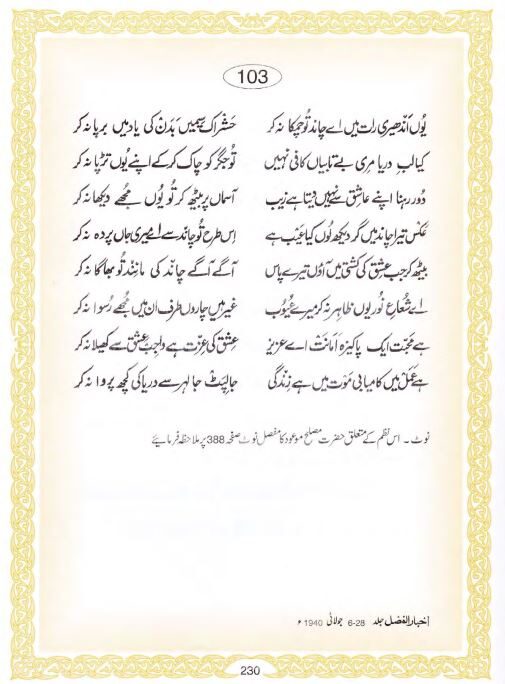 103
یُوں اندھیری رات میں اے چاند تُو چمکا نہ کر حشر اک سیمیں بدن کی یاد میں برپا نہ کر
کیا لبِ دریا مری بے تابیاں کافی نہیں تُو جگر کو چاک کر کے اپنے یُوں تڑپا نہ کر
دُور رہنا اپنے عاشق سے نہیں دیتا ہے زیب آسماں پر بیٹھ کر تُو یُوں مجھے دیکھا نہ کر
عکس تیرا چاند میں گر دیکھ لُوں کیا عیب ہے اِس طرح تُو چاند سے اے میری جاں پردہ نہ کر
بیٹھ کر جب عشق کی کشتی میں آؤں تیرے پاس آگے آگے چاند کی مانند تُو بھاگا نہ کر
اے شُعاعِ نُور یوں ظاہر نہ کر میرے عُیُوب غیر ہیں چاروں طرف ان میں مجھے رُسوا نہ کر
ہے محبّت ایک پاکیزہ امانت اے عزیز عشق کی عزّت ہے واجب عشق سے کھیلا نہ کر
ہے عمل میں کامیابی موت میں ہے زندگی جا لپٹ جا لہر سے دریا کی کچھ پروا نہ کر
نوٹ ۔ اس نظم کے متعلق حضرت مصلح موعود کا مفصل نوٹ صفحہ 388 پر ملاحظہ فرمائیے
اخبار الفضل جلد 28-6 جولائی 1940ء
230